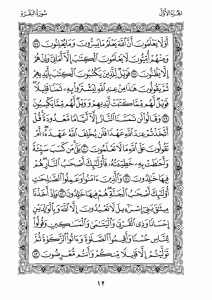 الجزء الأول سورة البقرة
أَوَلَا يَعْلَمُونَ أَنَّ ٱللَّهَ يَعْلَمُ مَا يُسِرُّونَ وَمَا يُعْلِنُونَ ٧٧
وَمِنْهُمْ أُمِّيُّونَ لَا يَعْلَمُونَ ٱلْكِتَٰبَ إِلَّآ أَمَانِىَّ وَإِنْ هُمْ
إِلَّا يَظُنُّونَ ٧٨ فَوَيْلٌ لِّلَّذِينَ يَكْتُبُونَ ٱلْكِتَٰبَ بِأَيْدِيهِمْ
ثُمَّ يَقُولُونَ هَٰذَا مِنْ عِندِ ٱللَّهِ لِيَشْتَرُوا۟ بِهِۦ ثَمَنًا قَلِيلًا
فَوَيْلٌ لَّهُم مِّمَّا كَتَبَتْ أَيْدِيهِمْ وَوَيْلٌ لَّهُم مِّمَّا يَكْسِبُونَ ٧٩
وَقَالُوا۟ لَن تَمَسَّنَا ٱلنَّارُ إِلَّآ أَيَّامًا مَّعْدُودَةً قُلْ
أَتَّخَذْتُمْ عِندَ ٱللَّهِ عَهْدًا فَلَن يُخْلِفَ ٱللَّهُ عَهْدَهُۥٓ أَمْ
تَقُولُونَ عَلَى ٱللَّهِ مَا لَا تَعْلَمُونَ ٨٠ بَلَىٰ مَن كَسَبَ سَيِّئَةً
وَأَحَٰطَتْ بِهِۦ خَطِيٓـَٔتُهُۥ فَأُو۟لَٰٓئِكَ أَصْحَٰبُ ٱلنَّارِ هُمْ
فِيهَا خَٰلِدُونَ ٨١ وَٱلَّذِينَ ءَامَنُوا۟ وَعَمِلُوا۟ ٱلصَّٰلِحَٰتِ
أُو۟لَٰٓئِكَ أَصْحَٰبُ ٱلْجَنَّةِ هُمْ فِيهَا خَٰلِدُونَ ٨٢ وَإِذْ أَخَذْنَا
مِيثَٰقَ بَنِىٓ إِسْرَٰٓءِيلَ لَا تَعْبُدُونَ إِلَّا ٱللَّهَ وَبِٱلْوَٰلِدَيْنِ
إِحْسَانًا وَذِى ٱلْقُرْبَىٰ وَٱلْيَتَٰمَىٰ وَٱلْمَسَٰكِينِ وَقُولُوا۟
لِلنَّاسِ حُسْنًا وَأَقِيمُوا۟ ٱلصَّلَوٰةَ وَءَاتُوا۟ ٱلزَّكَوٰةَ ثُمَّ
تَوَلَّيْتُمْ إِلَّا قَلِيلًا مِّنكُمْ وَأَنتُم مُّعْرِضُونَ ٨٣
١٢